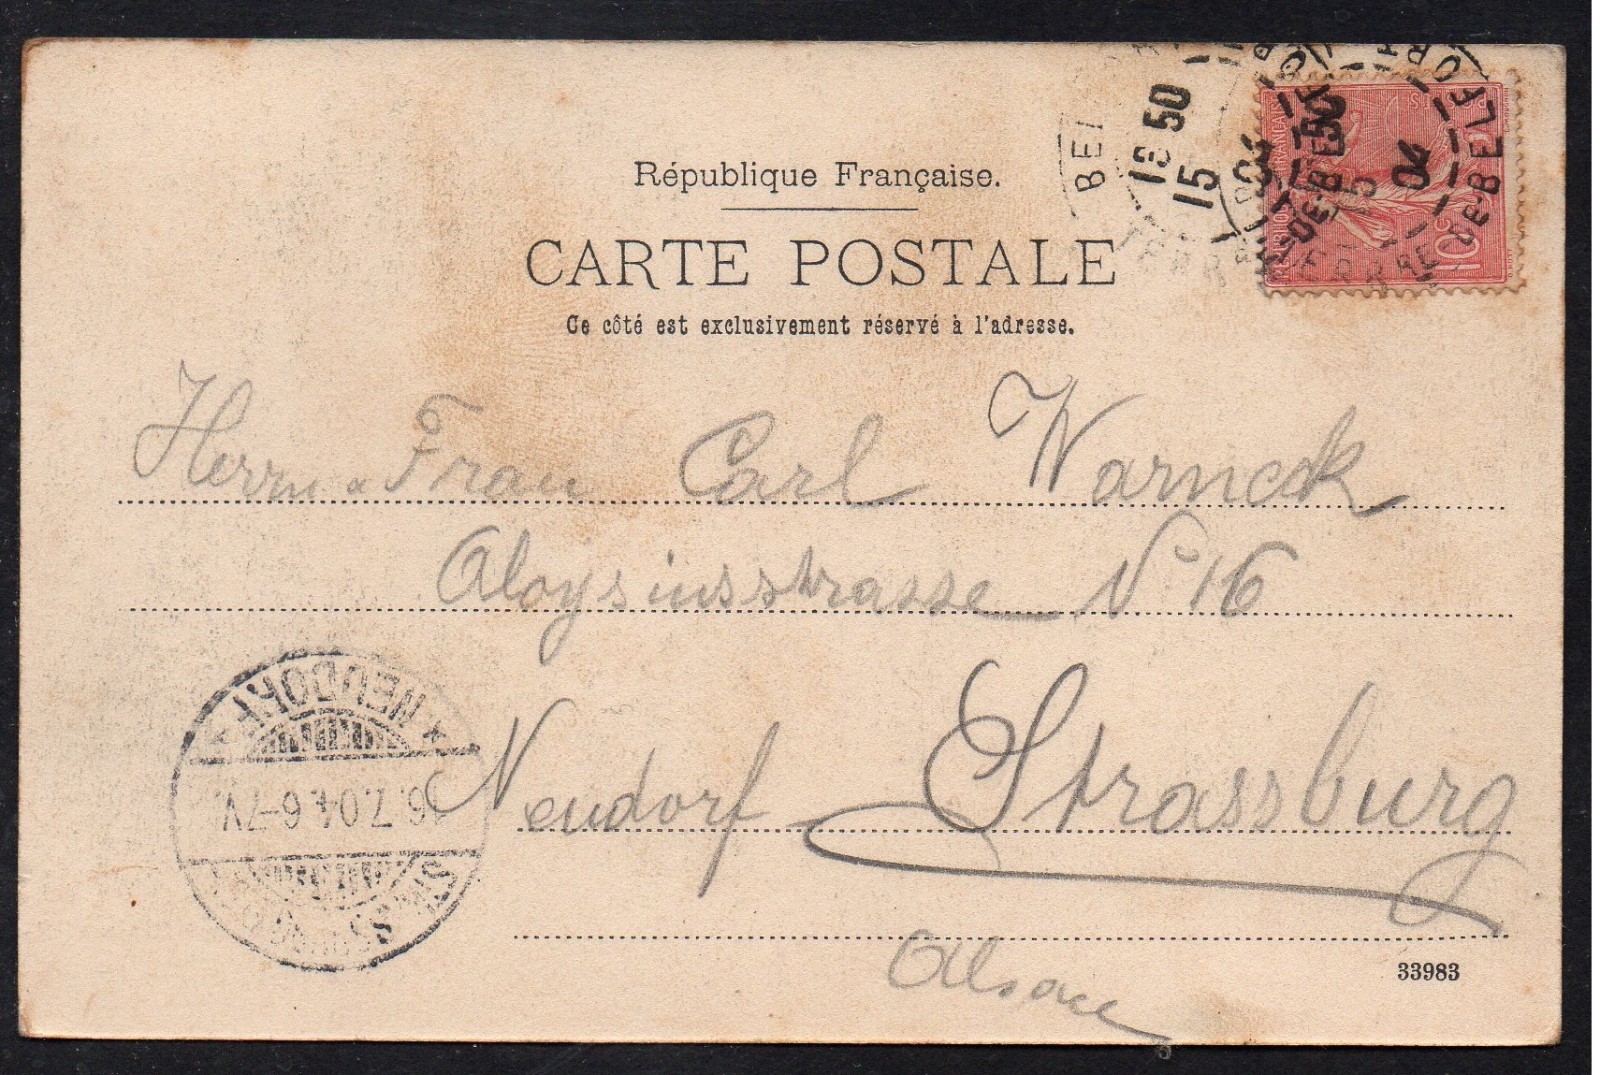 République Française.
CARTE POSTALE
Ce côté est exclusivement réservé à l'adresse.
18 50
15
04
BELFORT
TERRE-DE-BELFORT
10c
Herrn & Frau Carl Warneck
Aloysiusstrasse N° 16
Neudorf Strassburg
Alsace
* NEUDORF *
16.7.04. 6-7V.
STRASSBURG
33983